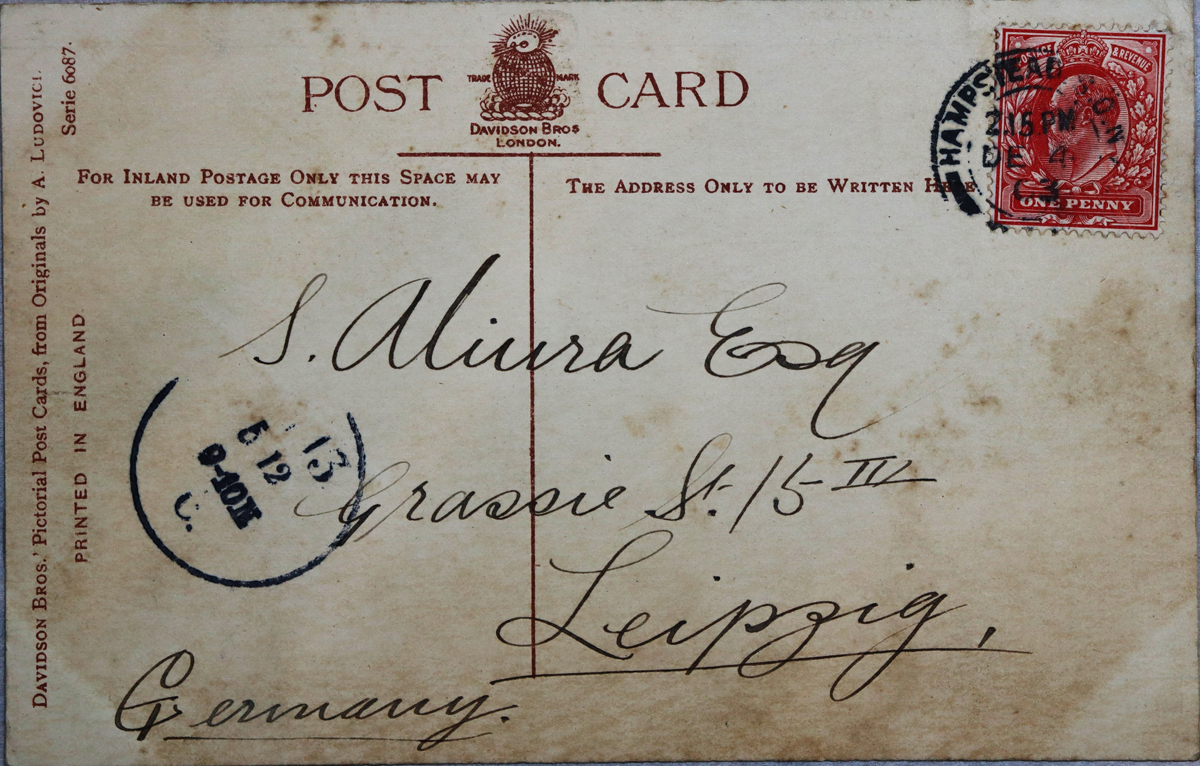 POST CARD
TRADE MARK
DAVIDSON BROS
LONDON.
FOR INLAND POSTAGE ONLY THIS SPACE MAY
BE USED FOR COMMUNICATION.
THE ADDRESS ONLY TO BE WRITTEN HERE.
POSTAGE & REVENUE
ONE PENNY
HAMPSTEAD
2.15 PM
DE 4
S. Miura Esq
Grassie St. 15 IV
Leipzig,
Germany.
5 12
9-10N
DAVIDSON BROS.' Pictorial Post Cards, from Originals by A. LUDOVICI.
Serie 6087.
PRINTED IN ENGLAND